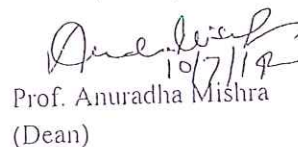 10/7/18
Prof. Anuradha Mishra
(Dean)